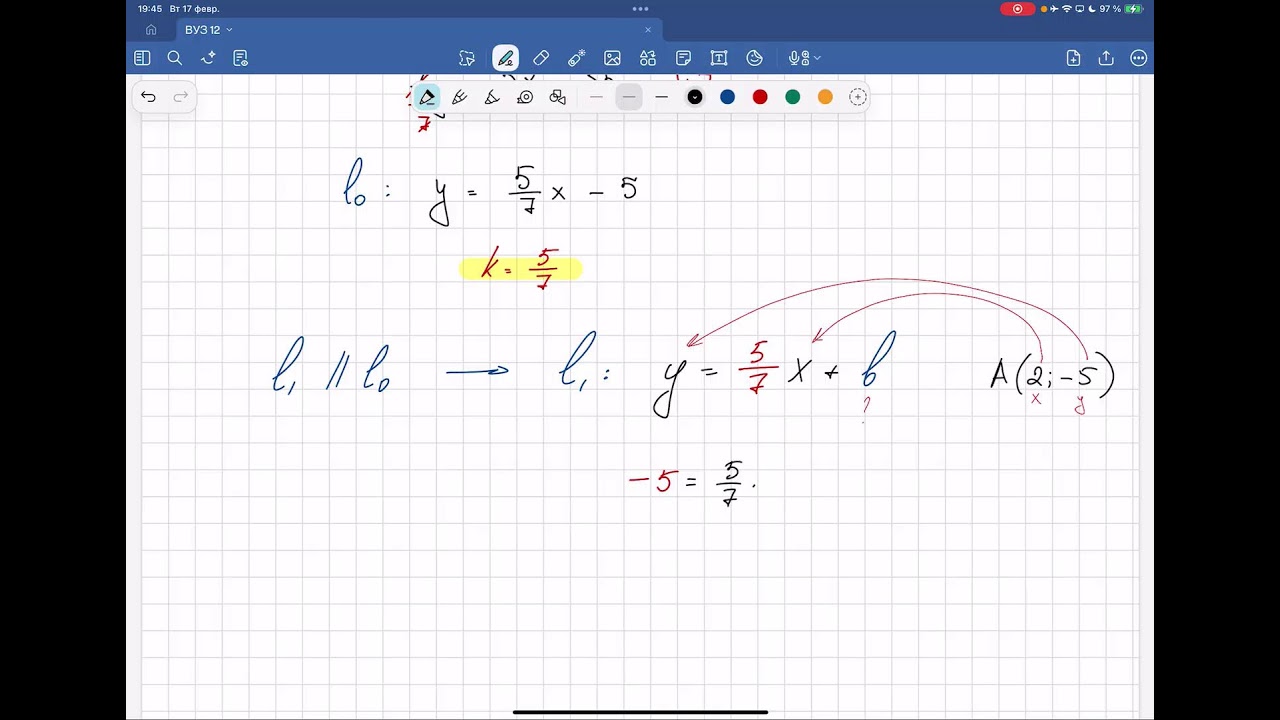 19:45 Вт 17 февр. 97 %
ВУЗ 12
7
l₀ : y = 5/7 x - 5
k = 5/7
l₁ // l₀ → l₁ : y = 5/7 x + b A(2; -5)
? x y
-5 = 5/7 ·